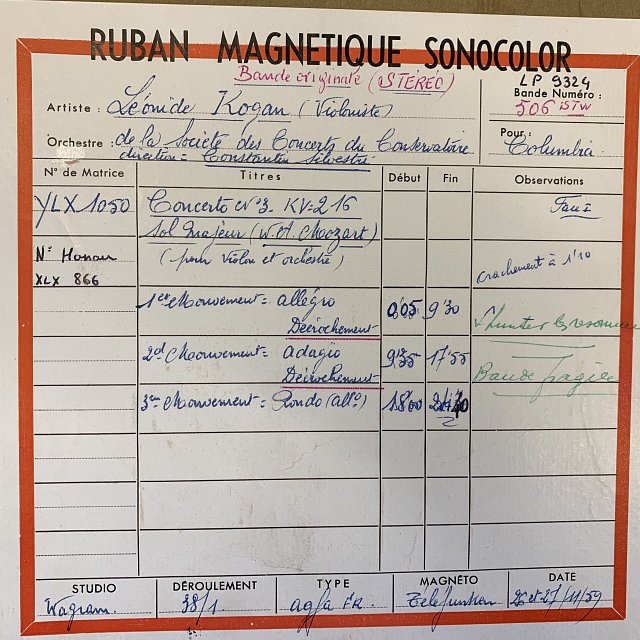 RUBAN MAGNETIQUE SONOCOLOR
Bande originale (STÉRÉO)
LP 9324
Bande Numéro :
506 ISTW
Artiste : Léonide Kogan (Violoniste)
Orchestre : de la Société des Concerts du Conservatoire
direction = Constantin Silvestri
Pour :
Columbia
N° de Matrice Titres Début Fin Observations
YLX 1050 Concerto N°3. KV=216
Sol Majeur (W A Mozart)
(pour Violon et orchestre)
N° Monau
XLX 866
Crachement à 1'10
1er Mouvement = allégro 0'05 9'30
Décrochement
Shunter les resonnances
2ed Mouvement = adagio 9'35 17'55
Décrochement
Bande fragile
3em Mouvement = Rondo (allo) 18'00
STUDIO DÉROULEMENT TYPE MAGNÉTO DATE
Wagram. 38/1 agfa FR Téléfunken 26 et 27/11/59